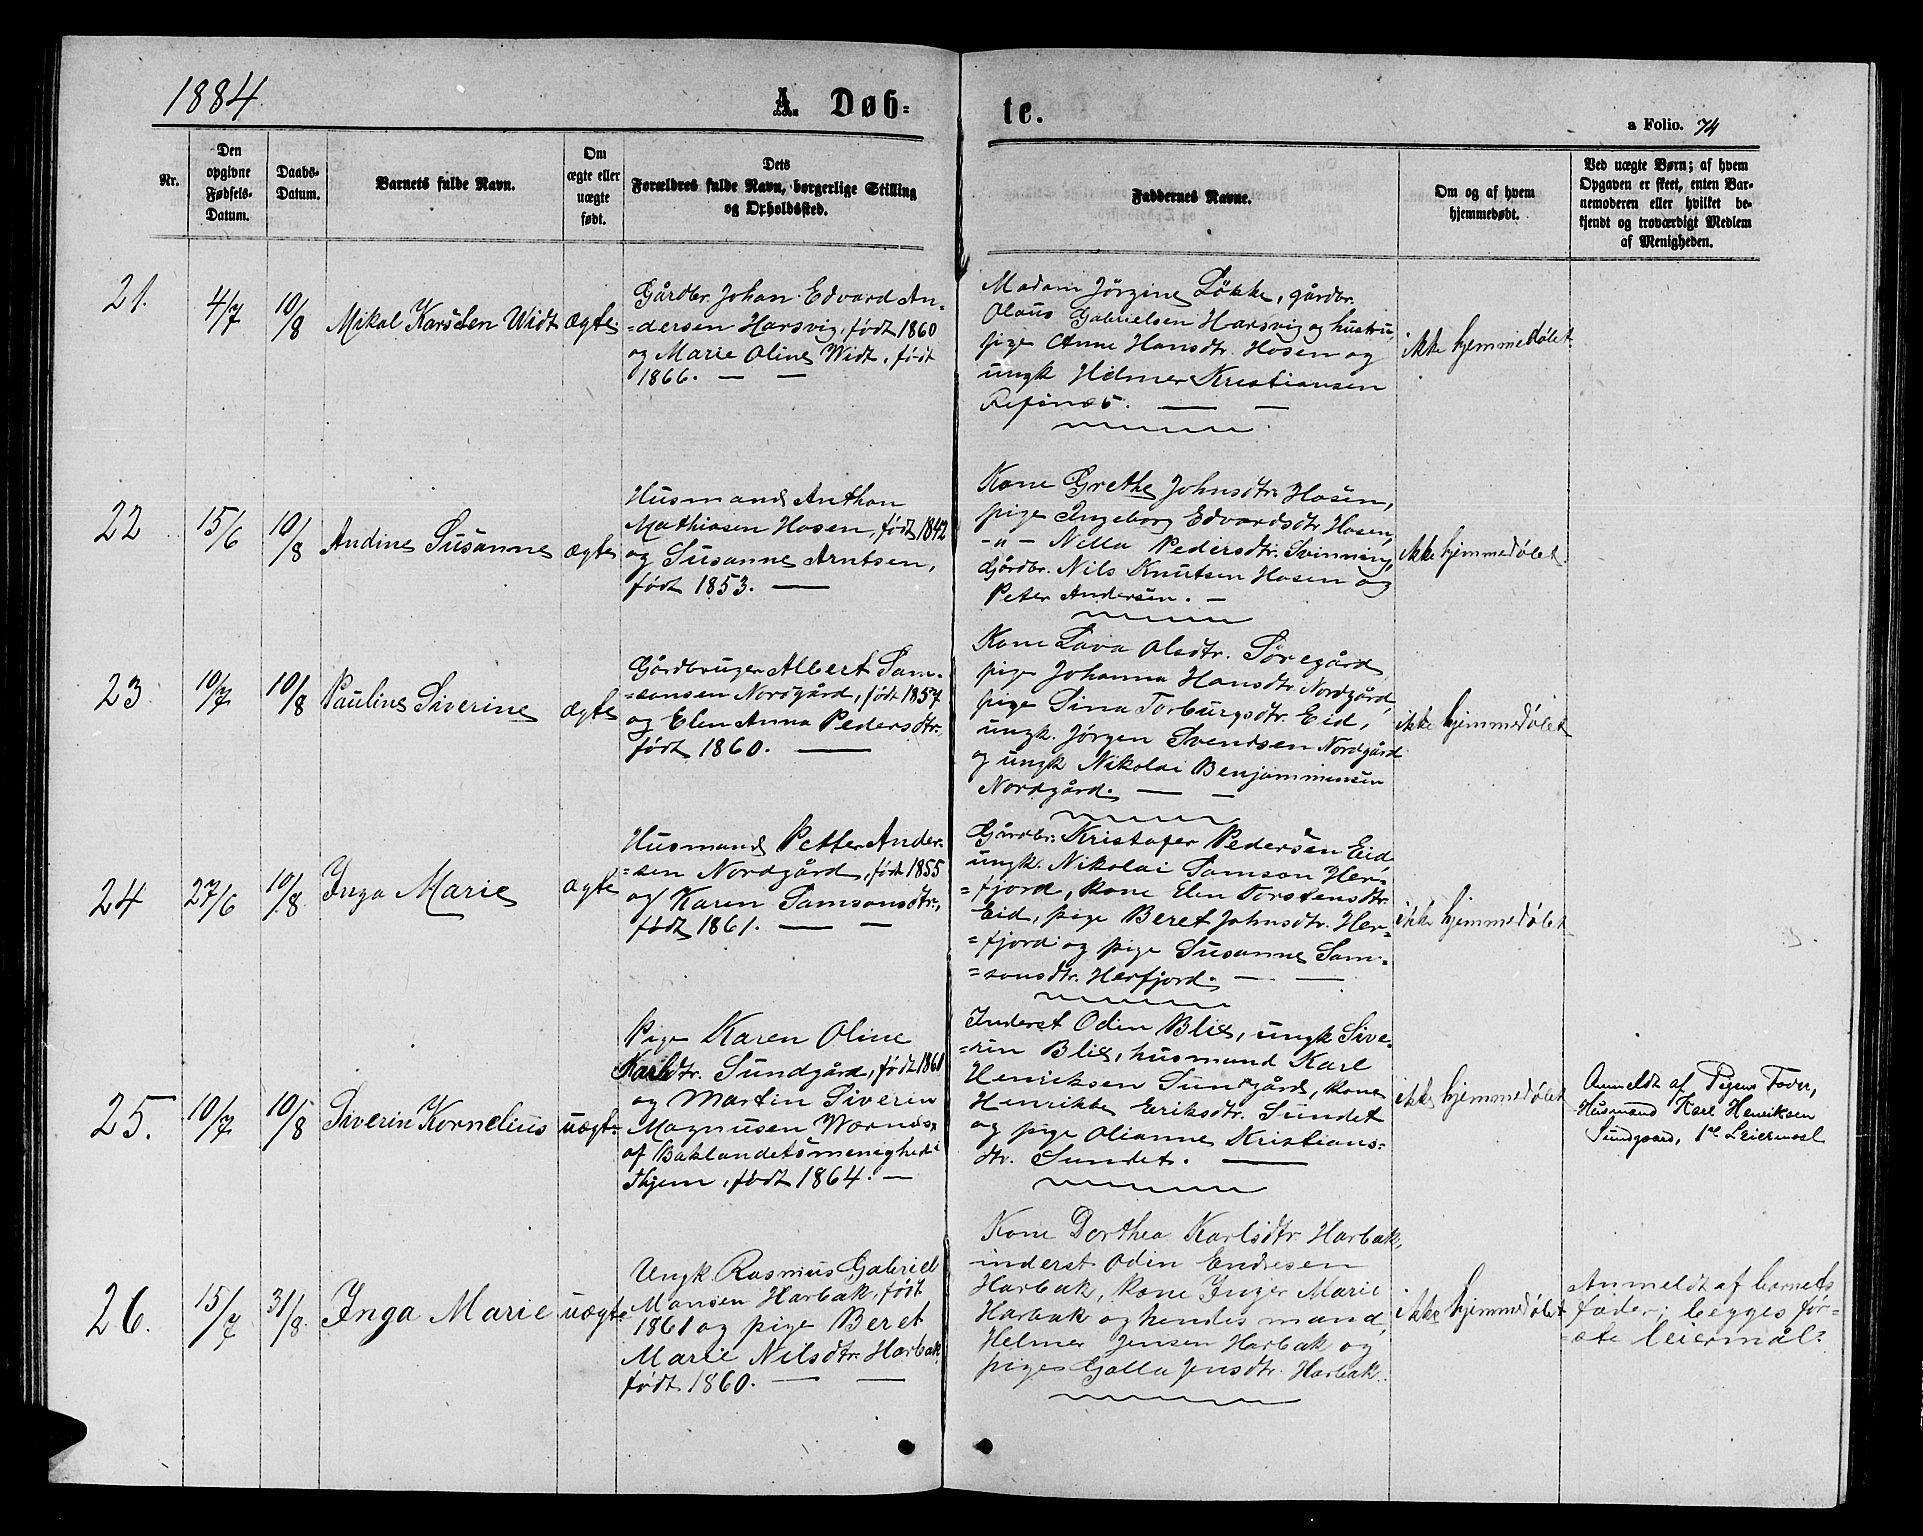 1884.
A. Døb-
te.
a Folio. 74
Nr.
Den
opgivne
Fødsels-
Datum.
Daabs-
Datum.
Barnets fulde Navn.
Om
ægte eller
uægte
født.
Dets
Forældres fulde Navn, borgerlige Stilling
og Opholdssted.
Faddernes Navne.
Om og af hvem
hjemmedøbt.
Ved uægte Børn; af hvem
Opgaven er skeet, enten Bar-
nemoderen eller hvilket be-
kjendt og troværdigt Medlem
af Menigheden.
21.
4/7
10/8
Mikal Karsten Widt
ægte
Gårdbr. Johan Edvard An-
=dersen Harsvig, født 1860
og Marie Oline Widt, født
1866. — —
Madam Jørgine Løkke, gårdbr.
Olaus Gabrielsen Harsvig og hustru,
pige Anne Hansdtr. Hosen og
ungk Hilmer Kristiansen
Refsnes. — —
ikke hjemmedøbt.
22
15/6
10/8
Andine Susanne
ægte
Husmand Anthon
Mathiasen Hosen, født 1842
og Susanne Arntsen,
født 1853. —
Kone Grethe Johnsdtr. Hosen,
pige Ingeborg Edvardsdtr. Hosen,
-"- Nilla Pedersdtr. Svinning,
Gårdbr. Nils Knutsen Hosen og
Peter Andersen. —
ikke hjemmedøbt.
23
10/7
10/8
Pauline Siverine
ægte
Gårdbruger Albert Sam-
=sonsen Nordgård, født 1857
og Elen Anna Pedersdtr.
født 1860. —
Kone Lava Olsdtr. Søregård,
pige Johanna Hansdtr. Nordgård,
pige Sina Torburgsdtr. Eid,
ungk. Jørgen Svendsen Nordgård
og ungk Nikolai Benjaminsen
Nordgård. — —
ikke hjemmedøbt
24
27/6
10/8
Inga Marie
ægte
Husmand Petter Ander-
=sen Nordgård, født 1855
og Karen Samsonsdtr.,
født 1861. — —
Gårdbr. Kristofer Pedersen Eid,
ungk. Nikolai Samson Her-
=fjord, kone Elen Torstensdtr.
Eid, pige Beret Johnsdtr. Her-
=fjord og pige Susanne Sam-
=sonsdtr. Herfjord. — —
ikke hjemmedøbt
25.
10/7
10/8
Siverin Kornelius
uægte
Pige Karen Oline
Karlsdtr. Sundgård, født 1861
og Martin Siverin
Magnusen Wornes
af Baklandetsmenighed i
Thjem, født 1864. —
Inderst Odin Blix, ungk Sive-
=rin Blix, husmand Karl
Henriksen Sundgård, kone
Henrikke Eriksdtr. Sundet
og pige Olianne Kristians-
dtr. Sundet. —
ikke hjemmedøbt
Anmeldt af Pigens Fader,
Husmand Karl Henriksen
Sundgaard, 1ste Leiermaal
26.
15/7
31/8
Inga Marie
uægte
Ungk. Rasmus Gabriel
Monsen Harbak, født
1861 og pige Beret
Marie Nilsdtr. Harbak
født 1860. — —
Kone Dorthea Karlsdtr. Harbak,
inderst Odin Endresen
Harbak, kone Inger Marie
Harbak og hendes mand,
Helmer Jensen Harbak og
pige Galla Jensdtr. Harbak.
ikke hjemmedøbt
Anmeldt af barnets
fader; begges før-
=ste leiermål.